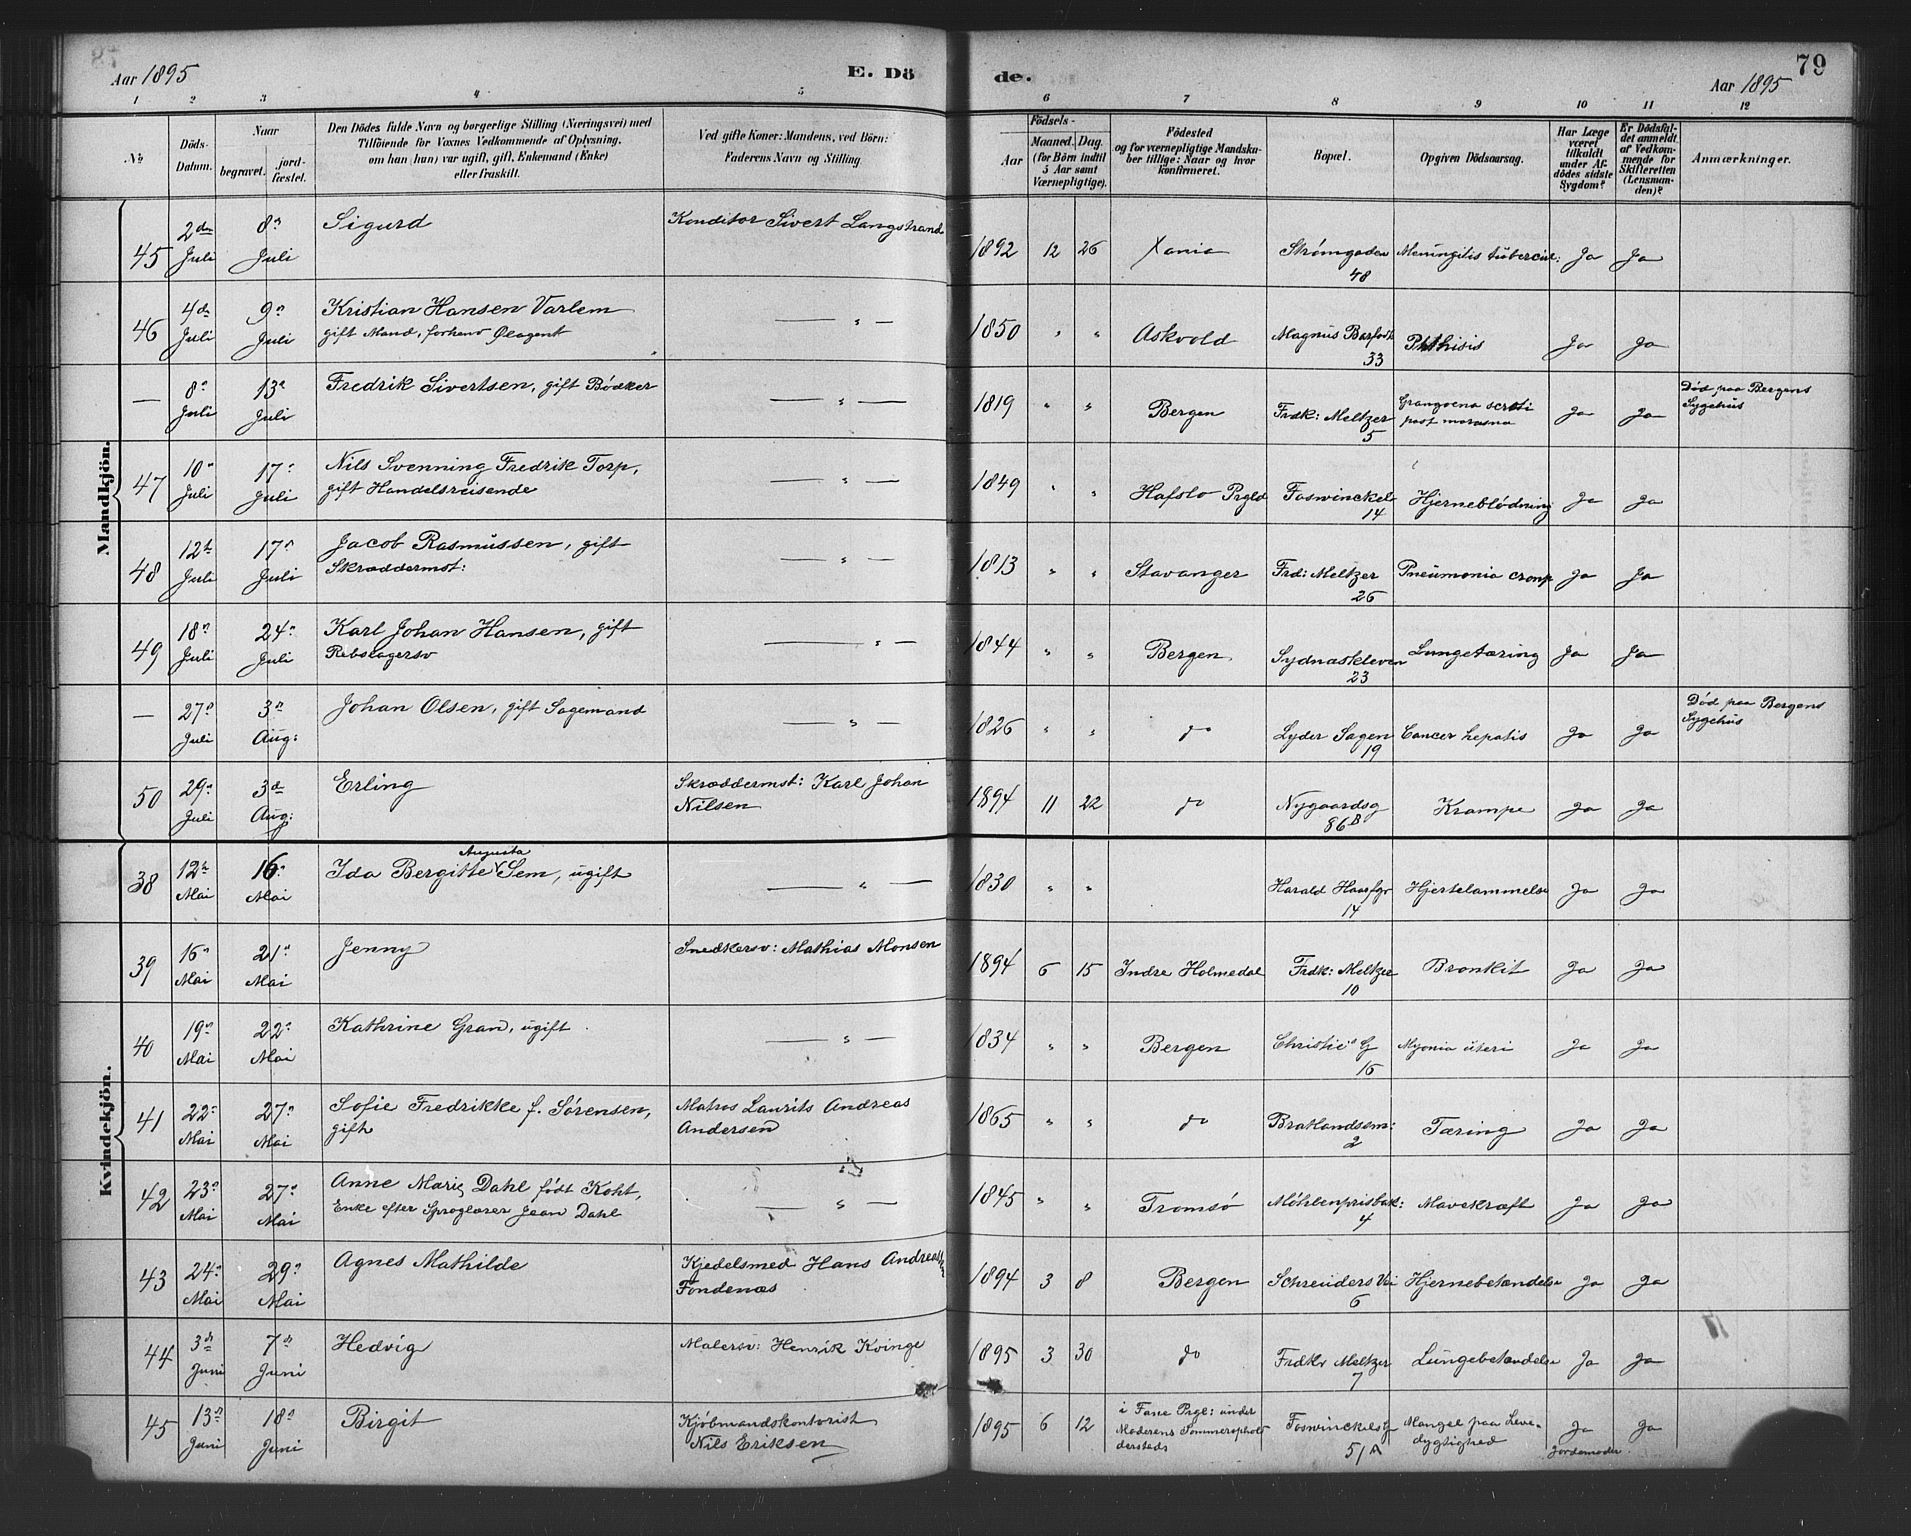 Aar 1895
E. Dö
de.
79
Aar 1895
1 2 3 4 5 6 7 8 9 10 11 12
No
Döds-
Datum.
Naar
begravet.
jord-
fæstet.
Den Dödes fulde Navn og borgerlige Stilling (Næringsvei) med
Tilföiende for Voxnes Vedkommende af Oplysning,
om han (hun) var ugift, gift, Enkemand (Enke)
eller fraskilt.
Ved gifte Koner: Mandens, ved Börn:
Faderens Navn og Stilling.
Födsels-
Aar
Maaned. Dag.
(for Börn indtil
5 Aar samt
Værnepligtige).
Födested
og for værnepligtige Mandska-
ber tillige: Naar og hvor
konfirmeret.
Bopæl.
Opgiven Dödsaarsag.
Har Læge
været
tilkaldt
under Af-
dödes sidste
Sygdom?
Er Dödsfal-
det anmeldt
af Vedkom-
mende for
Skifteretten
(Lensman-
den)?
Anmærkninger.
Mandkjön.
45 2den Juli 8n Juli Sigurd Konditor Sivert Langstrand 1892 12 26 Xania Strømgaden 48 Meningitis tubercul: Ja Ja
46 4de Juli 9n Juli Kristian Hansen Varlem
gift Mand, forhenv Ølagent — " — 1850 " " Askvold Magnus Barfodt 33 Phthisis Ja Ja
— 8n Juli 13n Juli Fredrik Sivertsen, gift Bødker — " — 1819 " " Bergen Frdk: Meltzer 5 Grangoena scroti
post morasna Ja Ja Død paa Bergens
Sygehus
47 10n Juli 17n Juli Nils Svenning Fredrik Torp,
gift Handelsreisende — " — 1849 " " Hafslo Prgld Foswinckel 14 Hjerneblødning Ja Ja
48 12te Juli 17n Juli Jacob Rasmussen, gift
Skræddermst: — " — 1813 " " Stavanger Frd: Meltzer 26 Pneumonia croup Ja Ja
49 18n Juli 24n Juli Karl Johan Hansen, gift
Rebslagersv — " — 1844 " " Bergen Sydnæskleven 23 Lungetæring Ja Ja
— 27n Juli 3n Aug: Johan Olsen, gift Sagemand — " — 1826 " " do Lyder Sagen 19 Cancer hepatis Ja Ja Død paa Bergens
Sygehus
50 29n Juli 3de Aug: Erling Skræddermst: Karl Johan
Nilsen 1894 11 22 do Nygaardsg 86B Krampe Ja Ja
Kvindekjön.
38 12te Mai 16n Mai Ida Bergitte Augusta Sem, ugift — " — 1830 " " Harald Haarfgr 14 Hjertelammelse Ja Ja
39 16n Mai 21n Mai Jenny Snedkersv: Mathias Monsen 1894 6 15 Indre Holmedal Frdk: Meltzer 10 Bronkit Ja Ja
40 19n Mai 22n Mai Kathrine Gran, ugift — " — 1834 " " Bergen Christies G 16 Myonia uteri Ja Ja
41 22n Mai 27n Mai Sofie Fredrikke f. Sørensen,
gift Matros Laurits Andreas
Andersen 1865 " " do Bratlandssm: 2 Tæring Ja Ja
42 23n Mai 27n Mai Anne Marie Dahl født Koht,
Enke efter Sproglærer Jean Dahl — " — 1845 " " Tromsø Møhlenprisbak: 4 Mavekræft Ja Ja
43 24n Mai 29n Mai Agnes Mathilde Kjedelsmed Hans Andreas
Fondenæs 1894 3 8 Bergen Schreuders Vei 6 Hjernebetændelse Ja Ja
44 3de Juni 7de Juni Hedvig Malersv: Henrik Kvinge 1895 3 30 do Frdkr Meltzer 7 Lungebetændelse Ja Ja
45 13n Juni 18n Juni Birgit Kjøbmandskontorist
Nils Eriksen 1895 6 12 i Fane Prgl: under
Moderens Sommerophol
dersteds Foswinckelsg 51A Mangel paa Leve-
dygtighed Ja
Jordemoder Ja